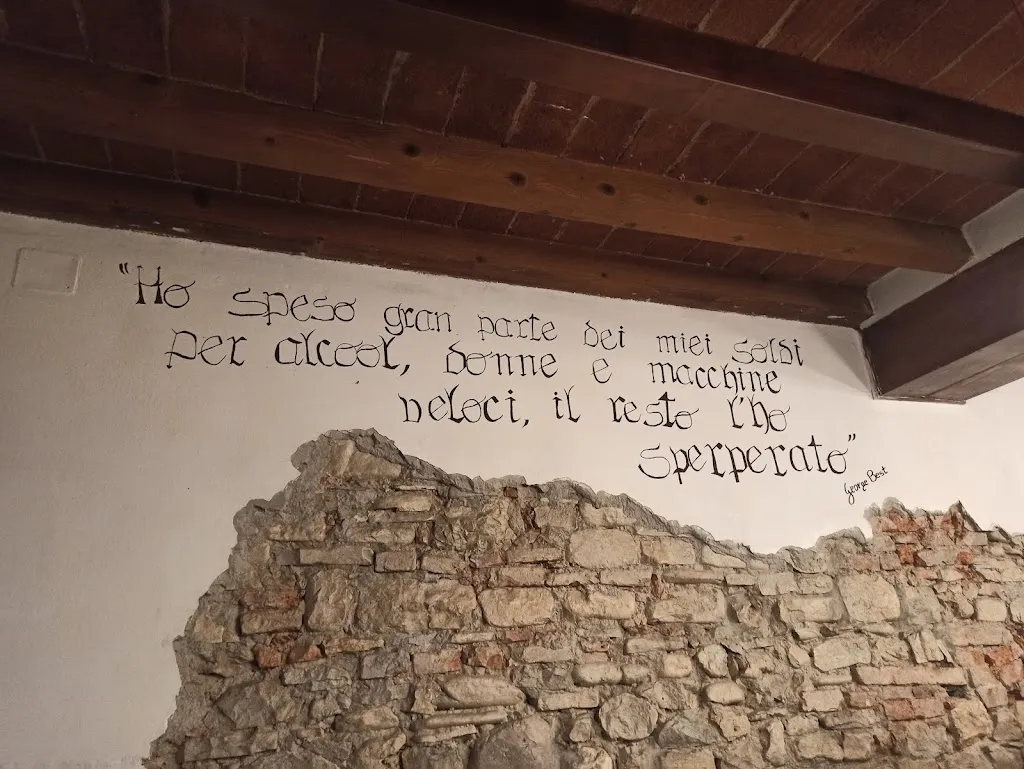 "Ho speso gran parte dei miei soldi
per alcool, donne e macchine
veloci, il resto l'ho
sperperato"
George Best